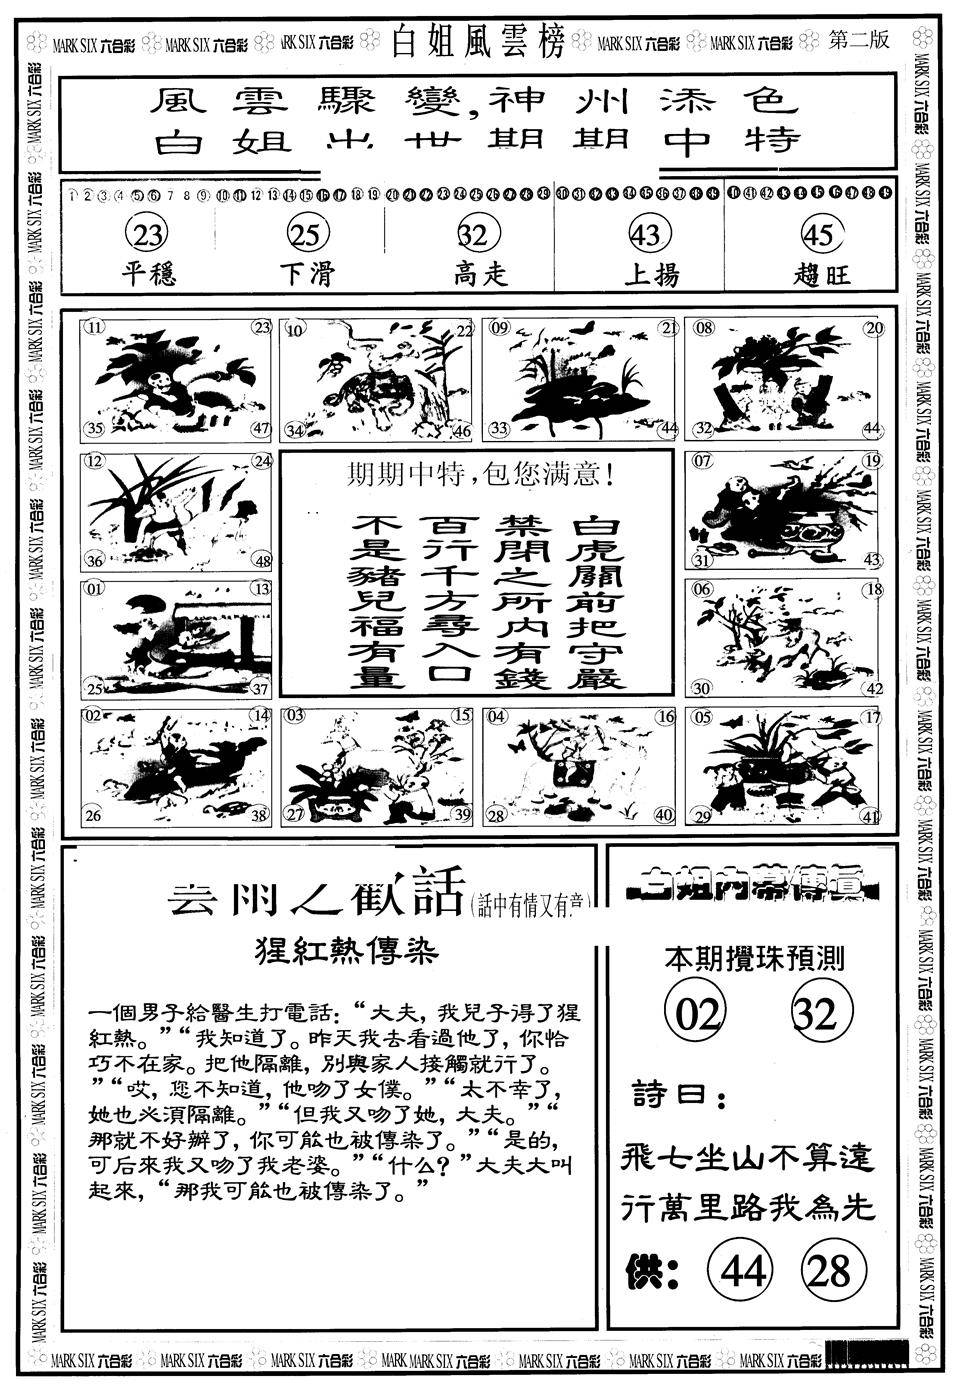 MARK SIX 六合彩 MARK SIX 六合彩 ARK SIX 六合彩 白姐風雲榜 MARK SIX 六合彩 MARK SIX 六合彩 第二版
風雲驟變,神州添色
白姐出世期期中特
1 2 3 4 5 6 7 8 9 10 11 12 13 14 15 16 17 18 19 20 21 22 23 24 25 26 27 28 29 30 31 32 33 34 35 36 37 38 39 40 41 42 43 44 45 46 47 48 49
23 25 32 43 45
平穩 下滑 高走 上揚 趨旺
11 23 10 22 09 21 08 20
35 47 34 46 33 44 32 44
12 24
36 48
01 13
25 37
期期中特,包您满意!
白虎關前把守嚴
禁閉之所内有錢
百行千方尋入口
不是豬兒福有量
07 19
31 43
06 18
30 42
02 14 03 15 04 16 05 17
26 38 27 39 28 40 29 41
雲雨之歡話(話中有情又有意)
猩紅熱傳染
一個男子給醫生打電話:“大夫,我兒子得了猩
紅熱。”“我知道了。昨天我去看過他了,你恰
巧不在家。把他隔離,別與家人接觸就行了。
”“哎,您不知道,他吻了女僕。”“太不幸了,
她也必須隔離。”“但我又吻了她,大夫。”“
那就不好辦了,你可能也被傳染了。”“是的,
可后來我又吻了我老婆。”“什么?”大夫大叫
起來,“那我可能也被傳染了。”
白姐内幕傳真
本期攪珠預測
02 32
詩曰:
飛七坐山不算遠
行萬里路我為先
供: 44 28
MARK SIX 六合彩 MARK SIX 六合彩 MARK SIX 六合彩 MARK MARK SIX 六合彩 MARK SIX 六合彩 MARK SIX 六合彩 MARK SIX 六合彩